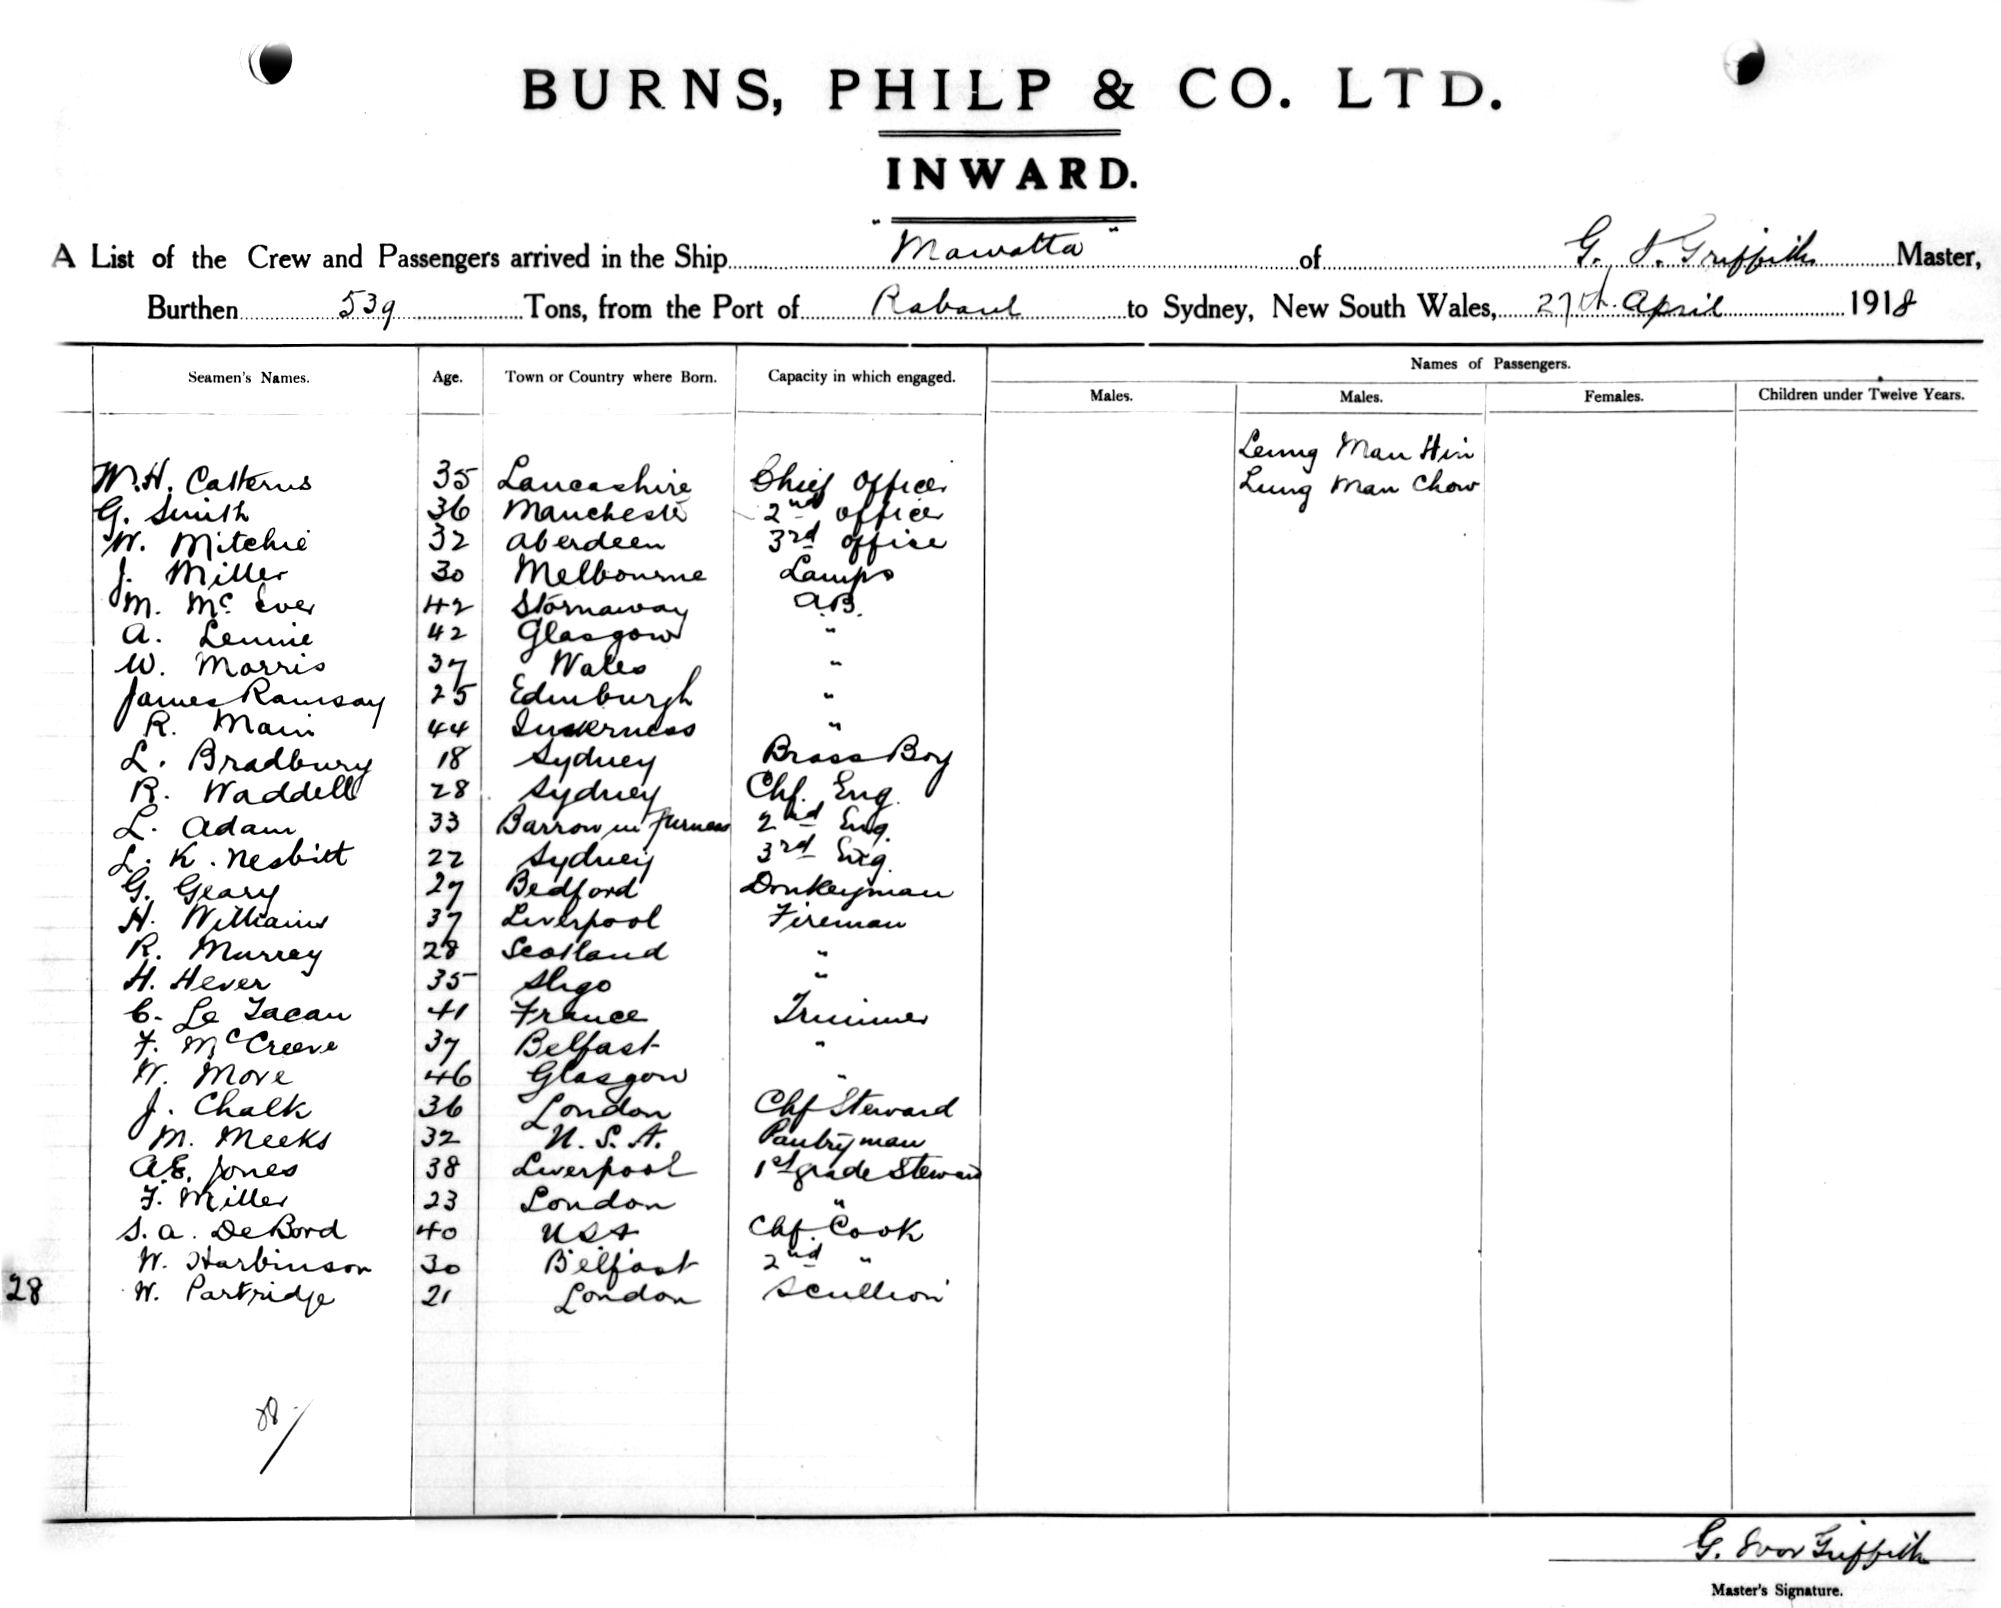 BURNS, PHILP & CO. LTD.
INWARD.
A List of the Crew and Passengers arrived in the Ship "Mawatta" of G. I. Griffith Master,
Burthen 539 Tons, from the Port of Rabaul to Sydney, New South Wales, 27th April 1918
Seamen's Names. Age. Town or Country where Born. Capacity in which engaged. Names of Passengers.
Males. Males. Females. Children under Twelve Years.
Leung Man Hin
Lung Man Chow
W.H. Catterns 35 Lancashire Chief Officer
G. Smith 36 Manchester 2nd officer
W. Mitchie 32 Aberdeen 3rd office
J. Miller 30 Melbourne Lamps
M. McEver 42 Stornaway A.B.
A. Lennie 42 Glasgow "
W. Morris 37 Wales "
James Ramsay 25 Edinburgh "
R. Main 44 Inverness "
L. Bradbury 18 Sydney Brass Boy
R. Waddell 28 Sydney Chf. Eng.
L. Adam 33 Barrow in Furness 2nd Eng.
L. K. Nesbitt 22 Sydney 3rd Eng.
G. Geary 27 Bedford Donkeyman
H. Williams 37 Liverpool Fireman
R. Murray 28 Scotland "
H. Hever 35 Sligo "
C. Le Tacan 41 France Trimmer
F. McCreeve 37 Belfast "
W. More 46 Glasgow "
J. Chalk 36 London Chf Steward
M. Meeks 32 U.S.A. Pantryman
A.E. Jones 38 Liverpool 1st grade Steward
F. Miller 23 London "
S. A. DeBord 40 USA Chf. Cook
W. Harbinson 30 Belfast 2nd "
28 W. Partridge 21 London Scullion
G. Ivor Griffith
Master's Signature.